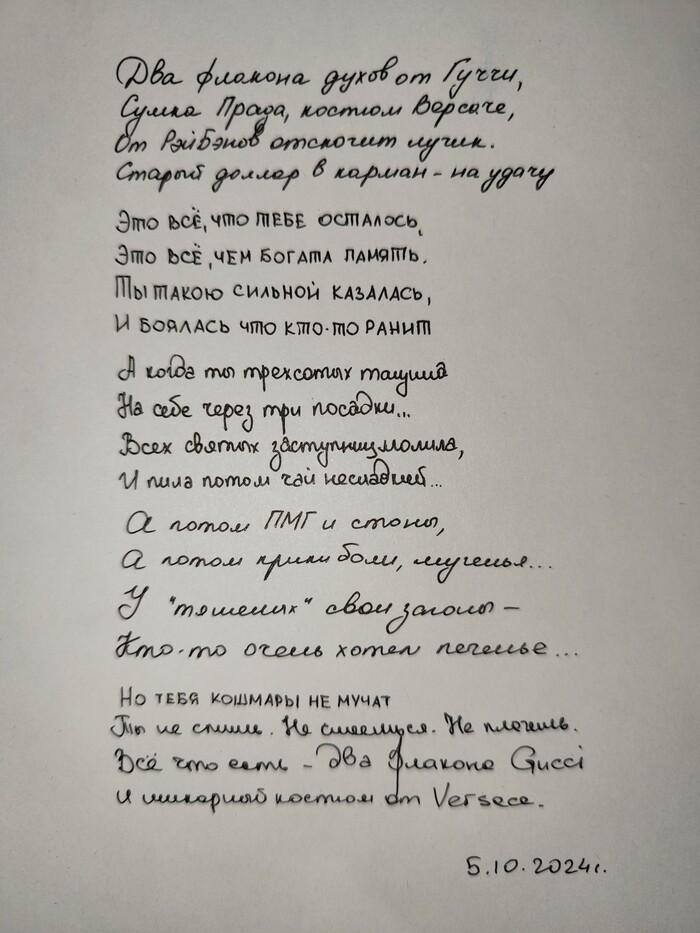 Два флакона духов от Гуччи,
Сумка Прада, костюм Версаче,
От РэйБэнов отскочит лучик.
Старый доллар в карман - на удачу
Это всё, что тебе осталось,
Это всё, чем богата память.
Ты такою сильной казалась,
И боялась что кто-то ранит
А когда ты трехсотых тащила
На себе через три посадки...
Всех святых заступниц молила,
И пила потом чай несладкий...
А потом ПМГ и стоны,
А потом крики боли, мученья...
У "тяжелых" свои загоны –
Кто-то очень хотел печенье...
Но тебя кошмары не мучат
Ты не спишь. Не смеешься. Не плачешь.
Всё что есть – два флакона Gucci
И шикарный костюм от Versace.
5.10.2024г.